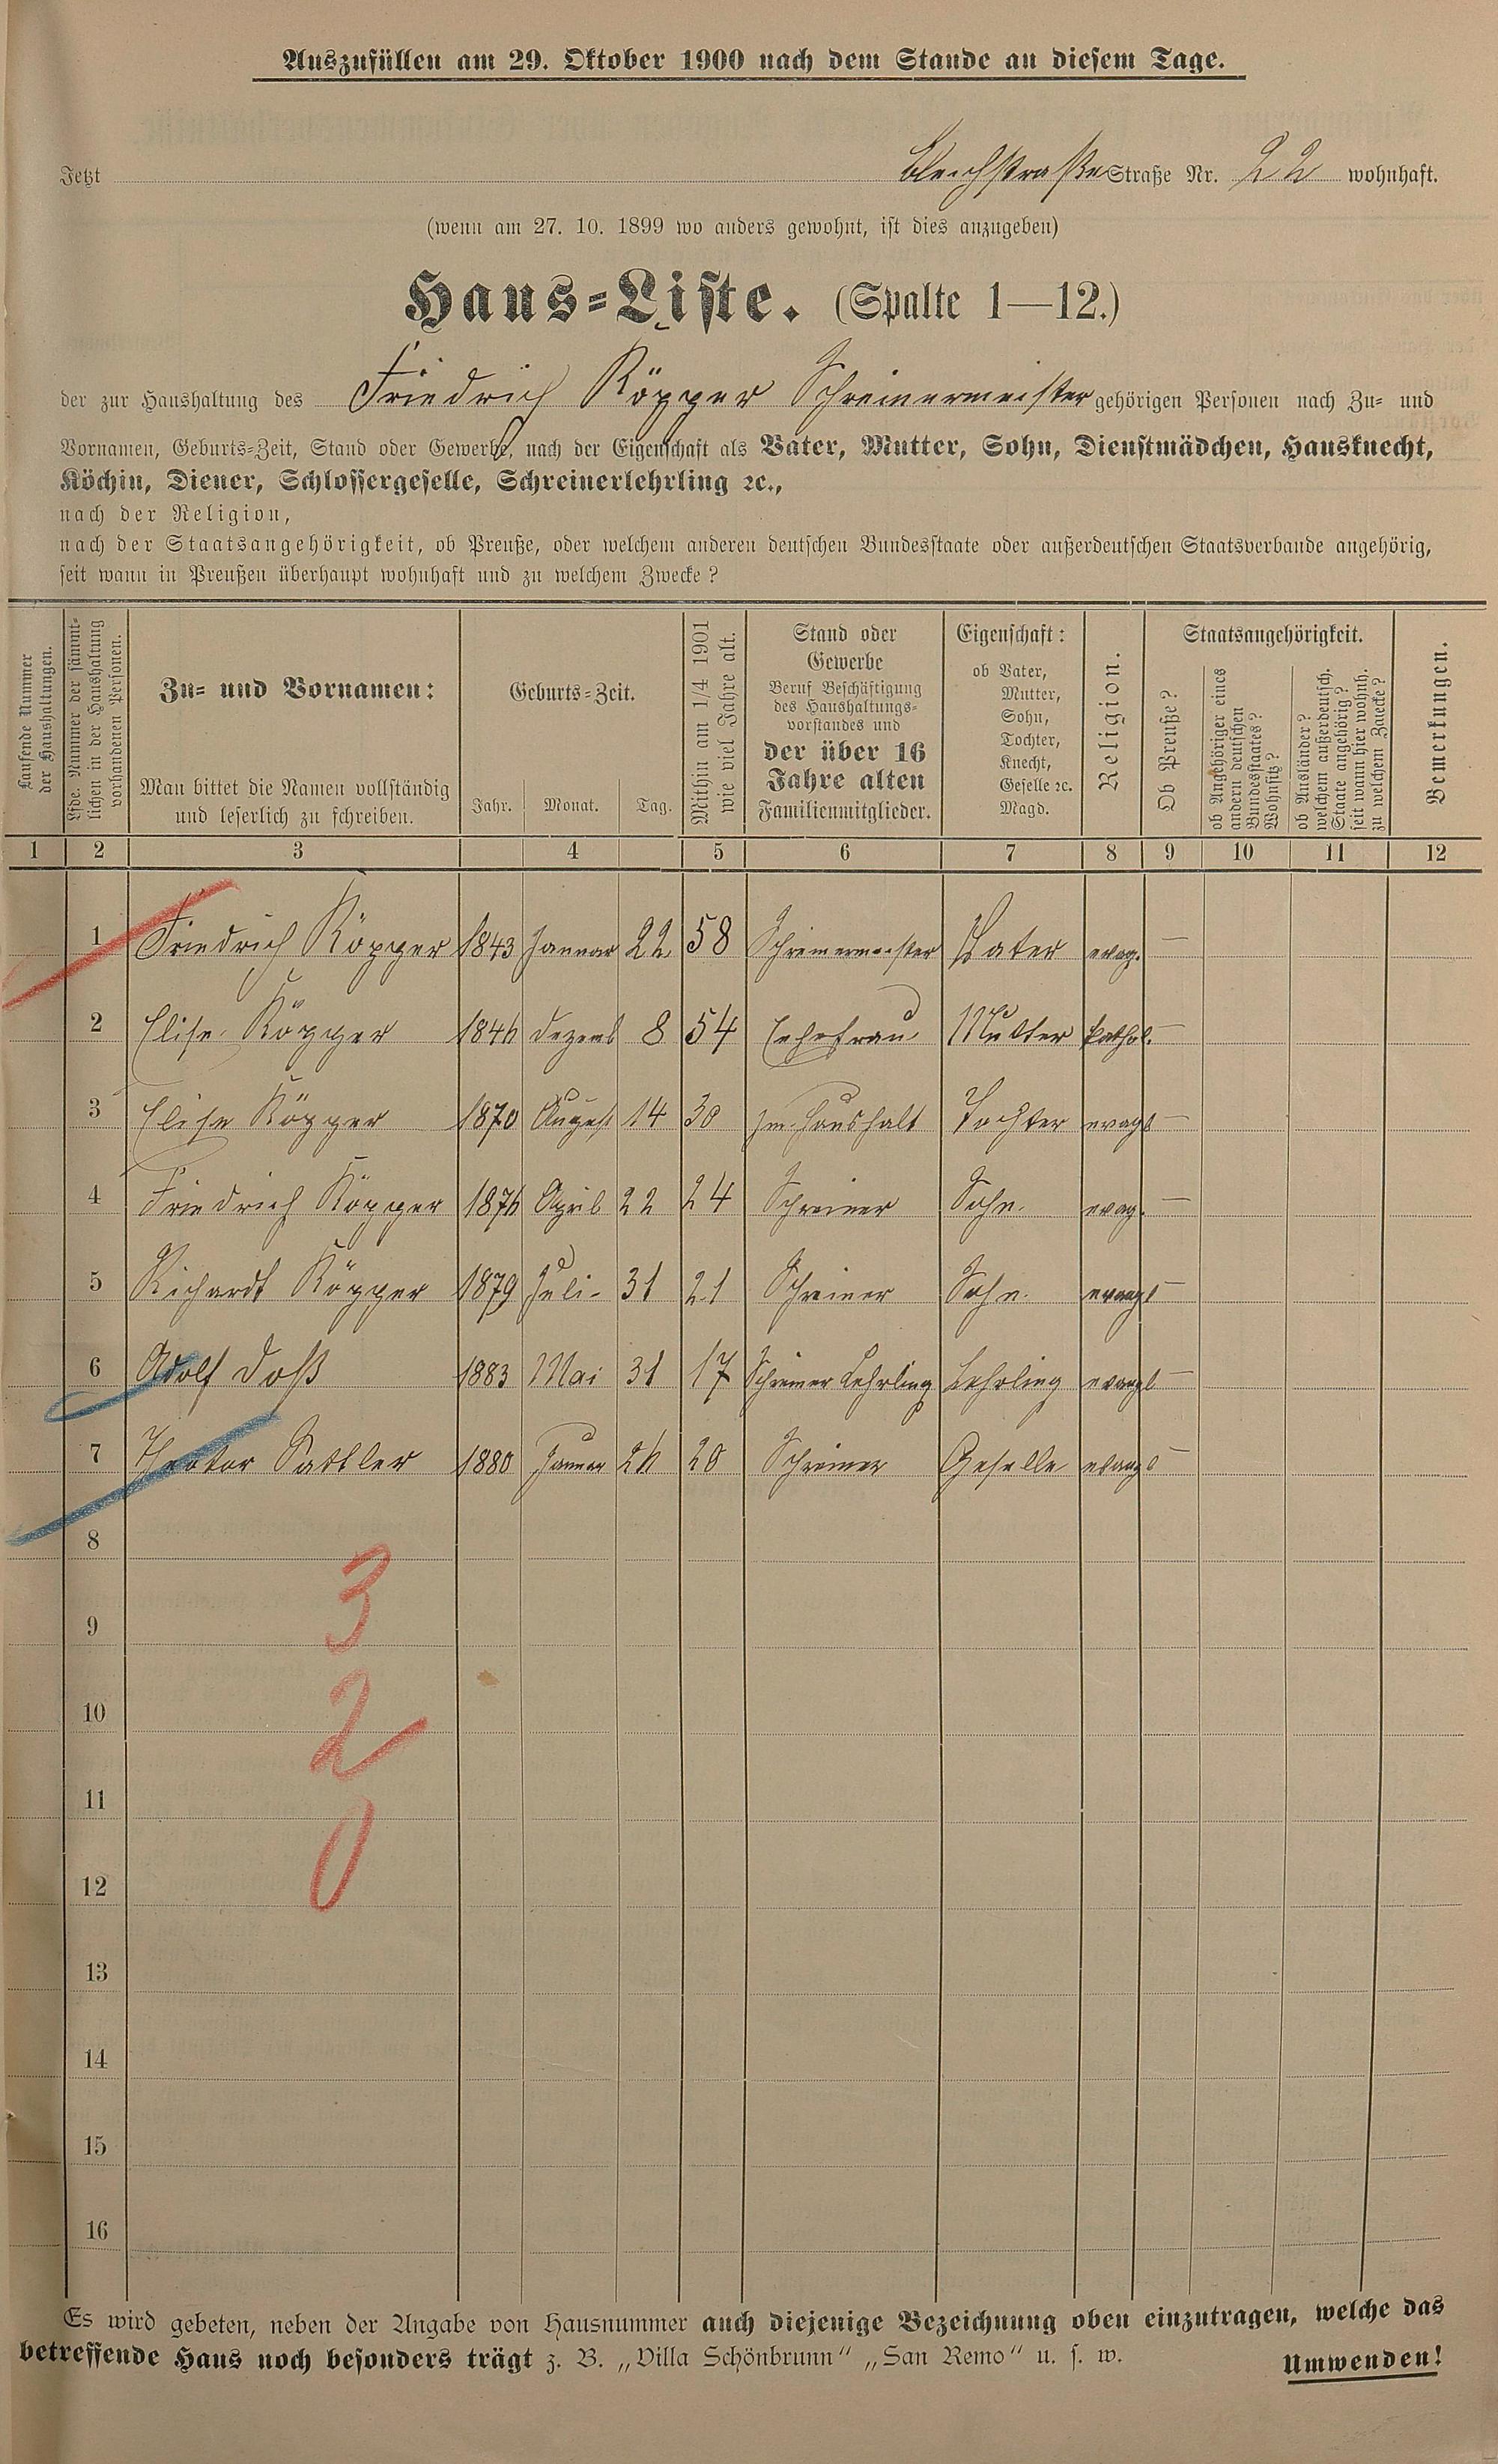 Auszufüllen am 29. Oktober 1900 nach dem Stande an diesem Tage.
Jetzt Bleichstraße Straße Nr. 22 wohnhaft.
(wenn am 27. 10. 1899 wo anders gewohnt, ist dies anzugeben)
Haus-Liste. (Spalte 1—12.)
der zur Haushaltung des Friedrich Köpper Schreinermeister gehörigen Personen nach Zu- und
Vornamen, Geburts-Zeit, Stand oder Gewerbe, nach der Eigenschaft als Vater, Mutter, Sohn, Dienstmädchen, Hausknecht,
Köchin, Diener, Schlossergeselle, Schreinerlehrling ꝛc.,
nach der Religion,
nach der Staatsangehörigkeit, ob Preuße, oder welchem anderen deutschen Bundesstaate oder außerdeutschen Staatsverbande angehörig,
seit wann in Preußen überhaupt wohnhaft und zu welchem Zwecke?
Laufende Nummer
der Haushaltungen.
Lfde. Nummer der sämmt-
lichen in der Haushaltung
vorhandenen Personen.
Zu- und Vornamen:
Man bittet die Namen vollständig
und leserlich zu schreiben.
Geburts-Zeit.
Jahr. Monat. Tag.
Mithin am 1/4 1901
wie viel Jahre alt.
Stand oder
Gewerbe
Beruf Beschäftigung
des Haushaltungs-
vorstandes und
der über 16
Jahre alten
Familienmitglieder.
Eigenschaft:
ob Vater,
Mutter,
Sohn,
Tochter,
Knecht,
Geselle ꝛc.
Magd.
Religion.
Staatsangehörigkeit.
Ob Preuße?
ob Angehöriger eines
andern deutschen
Bundesstaates?
Wohnsitz?
ob Ausländer?
welchem außerdeutsch.
Staate angehörig?
seit wann hier wohnh.
zu welchem Zwecke?
Bemerkungen.
1 2 3 4 5 6 7 8 9 10 11 12
1 Friedrich Köpper 1843 Januar 22 58 Schreinermeister Vater evag. —
2 Elise Köpper 1846 Dezemb 8 54 Ehefrau Mutter kathol. —
3 Elise Köpper 1870 August 14 30 Im Haushalt Tochter evagl —
4 Friedrich Köpper 1876 April 22 24 Schreiner Sohn evag. —
5 Richardt Köpper 1879 Juli 31 21 Schreiner Sohn evangl —
6 Adolf Doß 1883 Mai 31 17 Schreiner Lehrling Lehrling evangl —
7 Theodor Sattler 1880 Januar 26 20 Schreiner Geselle evangl —
8
3
9
2
10
11
0
12
13
14
15
16
Es wird gebeten, neben der Angabe von Hausnummer auch diejenige Bezeichnung oben einzutragen, welche das
betreffende Haus noch besonders trägt z. B. „Villa Schönbrunn“ „San Remo“ u. s. w. Umwenden!